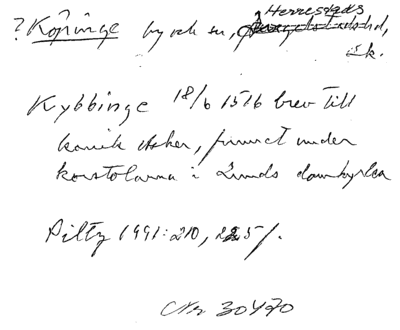 ? Köpinge by och sn, Herrestads
hd,
sk.
Kybbinge 18/6 1516 brev till
kanik Asker, funnet under
korstolarna i Lunds domkyrka
Piltz 1991: 210, 225 f.
Nr 30470